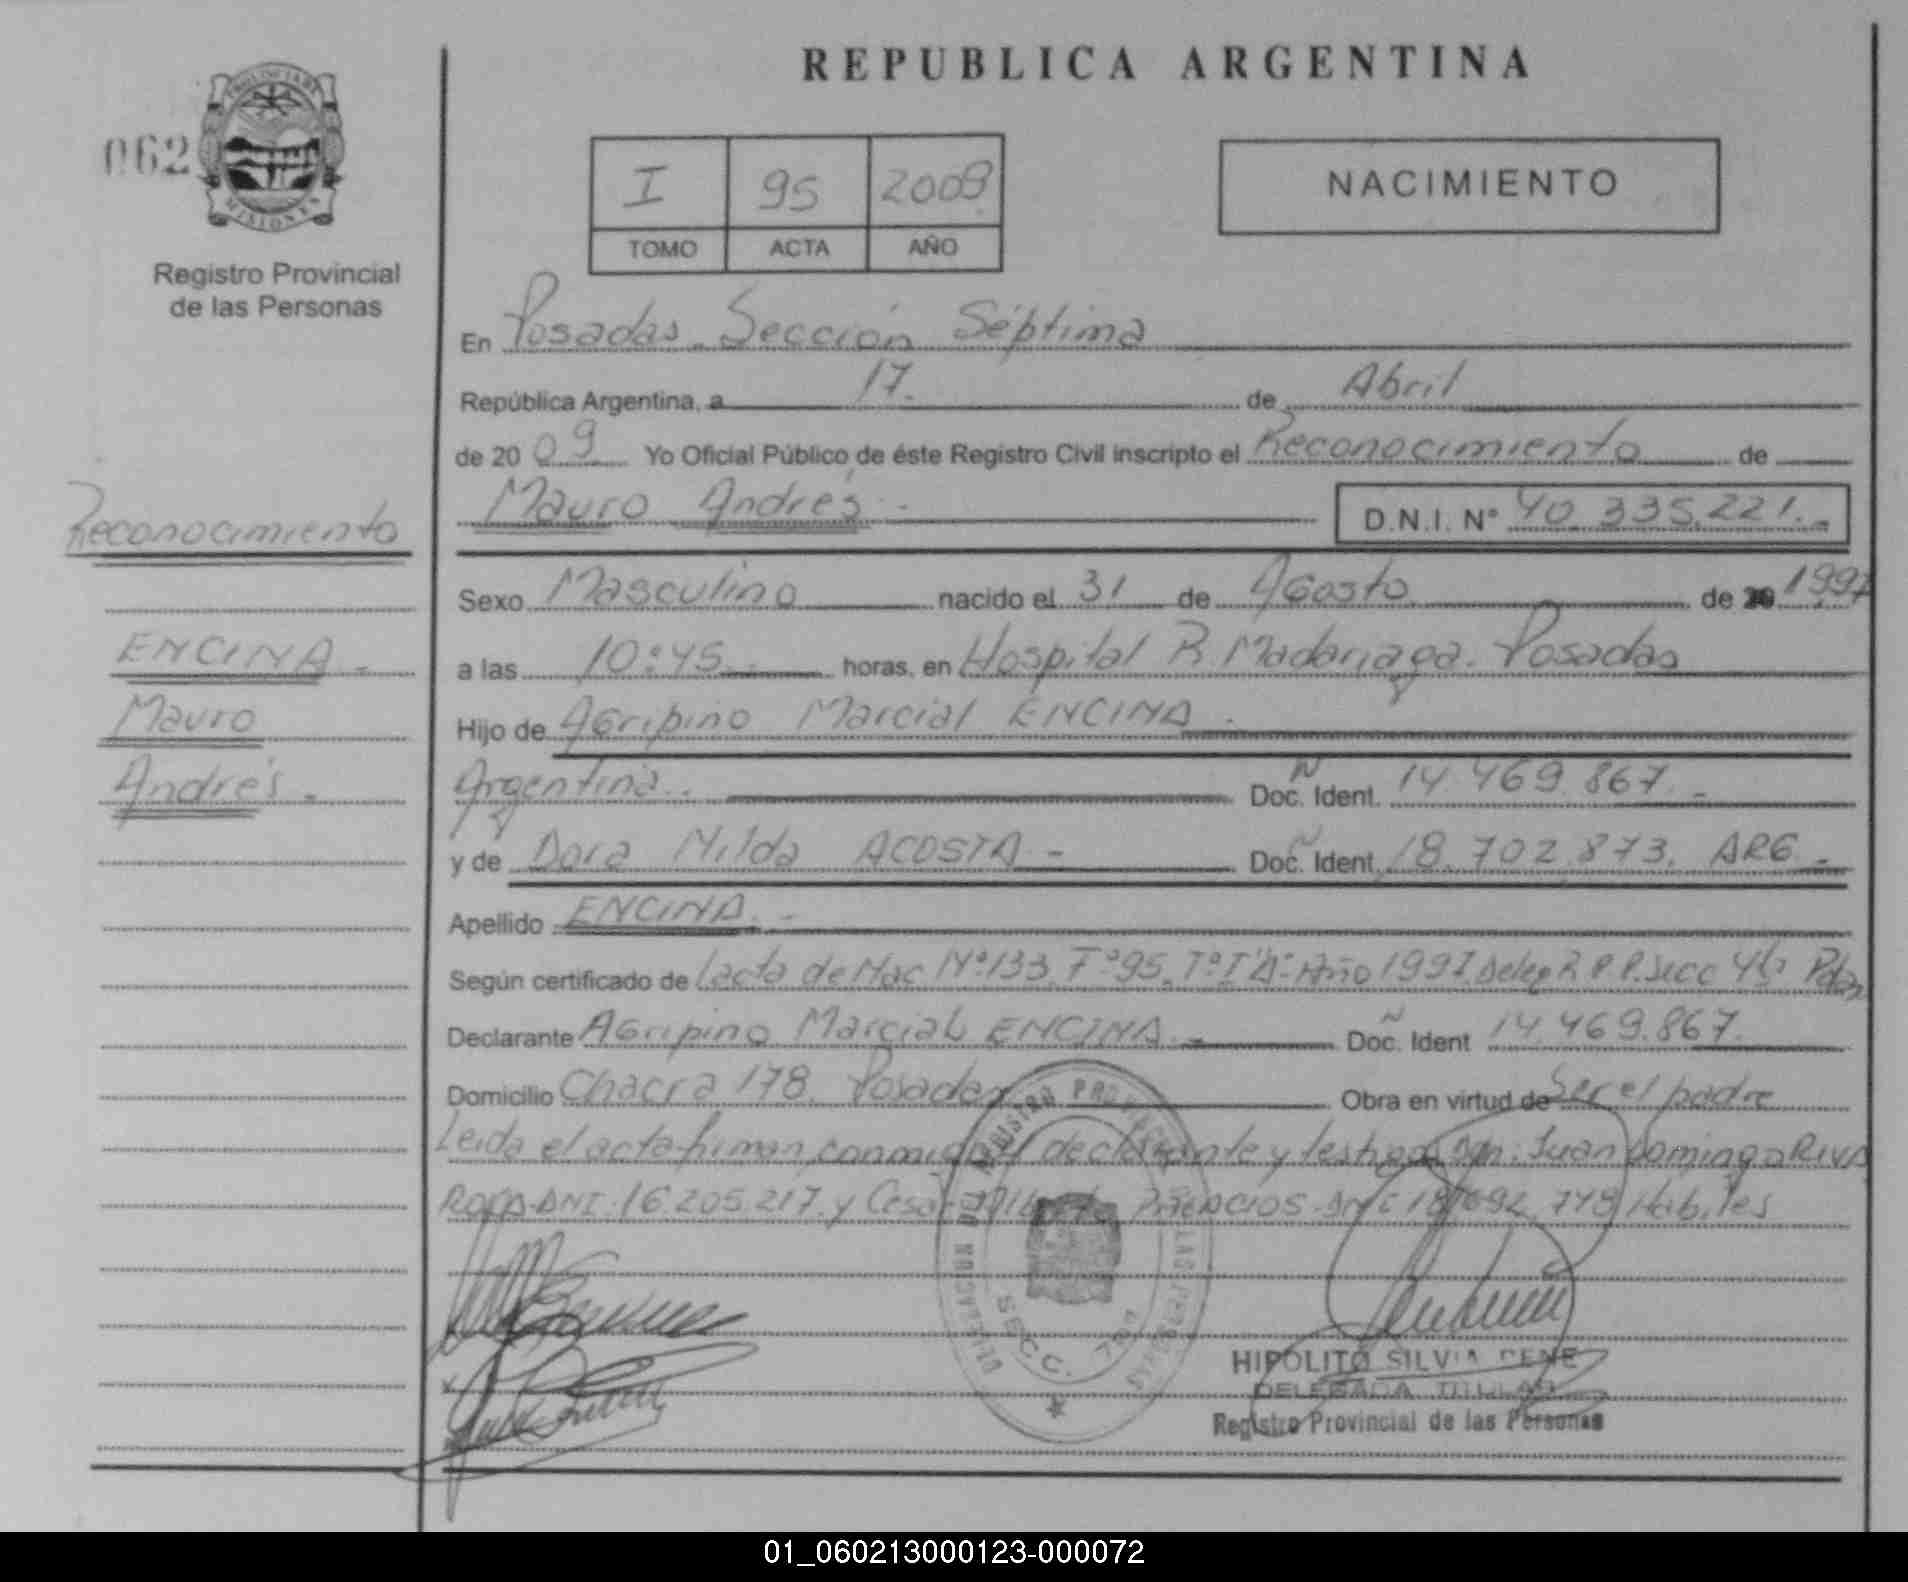 REPUBLICA ARGENTINA
062
PROVINCIA DE
MISIONES
Registro Provincial
de las Personas
I 95 2009
TOMO ACTA AÑO
NACIMIENTO
En Posadas. Sección Séptima
República Argentina, a 17. de Abril
de 20 09 Yo Oficial Público de éste Registro Civil inscripto el Reconocimiento de
Mauro Andrés.- D.N.I. Nº 40.335.221.-
Reconocimiento
ENCINA.-
Mauro
Andrés.-
Sexo Masculino nacido el 31 de Agosto de 1997
a las 10:45. horas, en Hospital R. Madariaga. Posadas
Hijo de Agripino Marcial ENCINA.
Argentina. Doc. Ident. 14.469.867.-
y de Dora Nilda ACOSTA.- Doc. Ident. 18.702.873. ARG.-
Apellido ENCINA.-
Según certificado de Lacta de Nac Nº133, Fº95, TºI "A" Año 1997. Deleg R.P.P. Secc 4ta Pdas
Declarante Agripino Marcial ENCINA.- Doc. Ident 14.469.867.
Domicilio Chacra 178. Posadas Obra en virtud de Ser el padre
Leida el acta firman conmigo el declarante y testigos Juan Domingo RIVA
ROLA DNI: 16.205.217. y Cesar PALACIOS DNI 18.692.778 Habiles
SECC. 7
HIPOLITO SILVIA RENE
DELEGADA TITULAR
Registro Provincial de las Personas
01_060213000123-000072